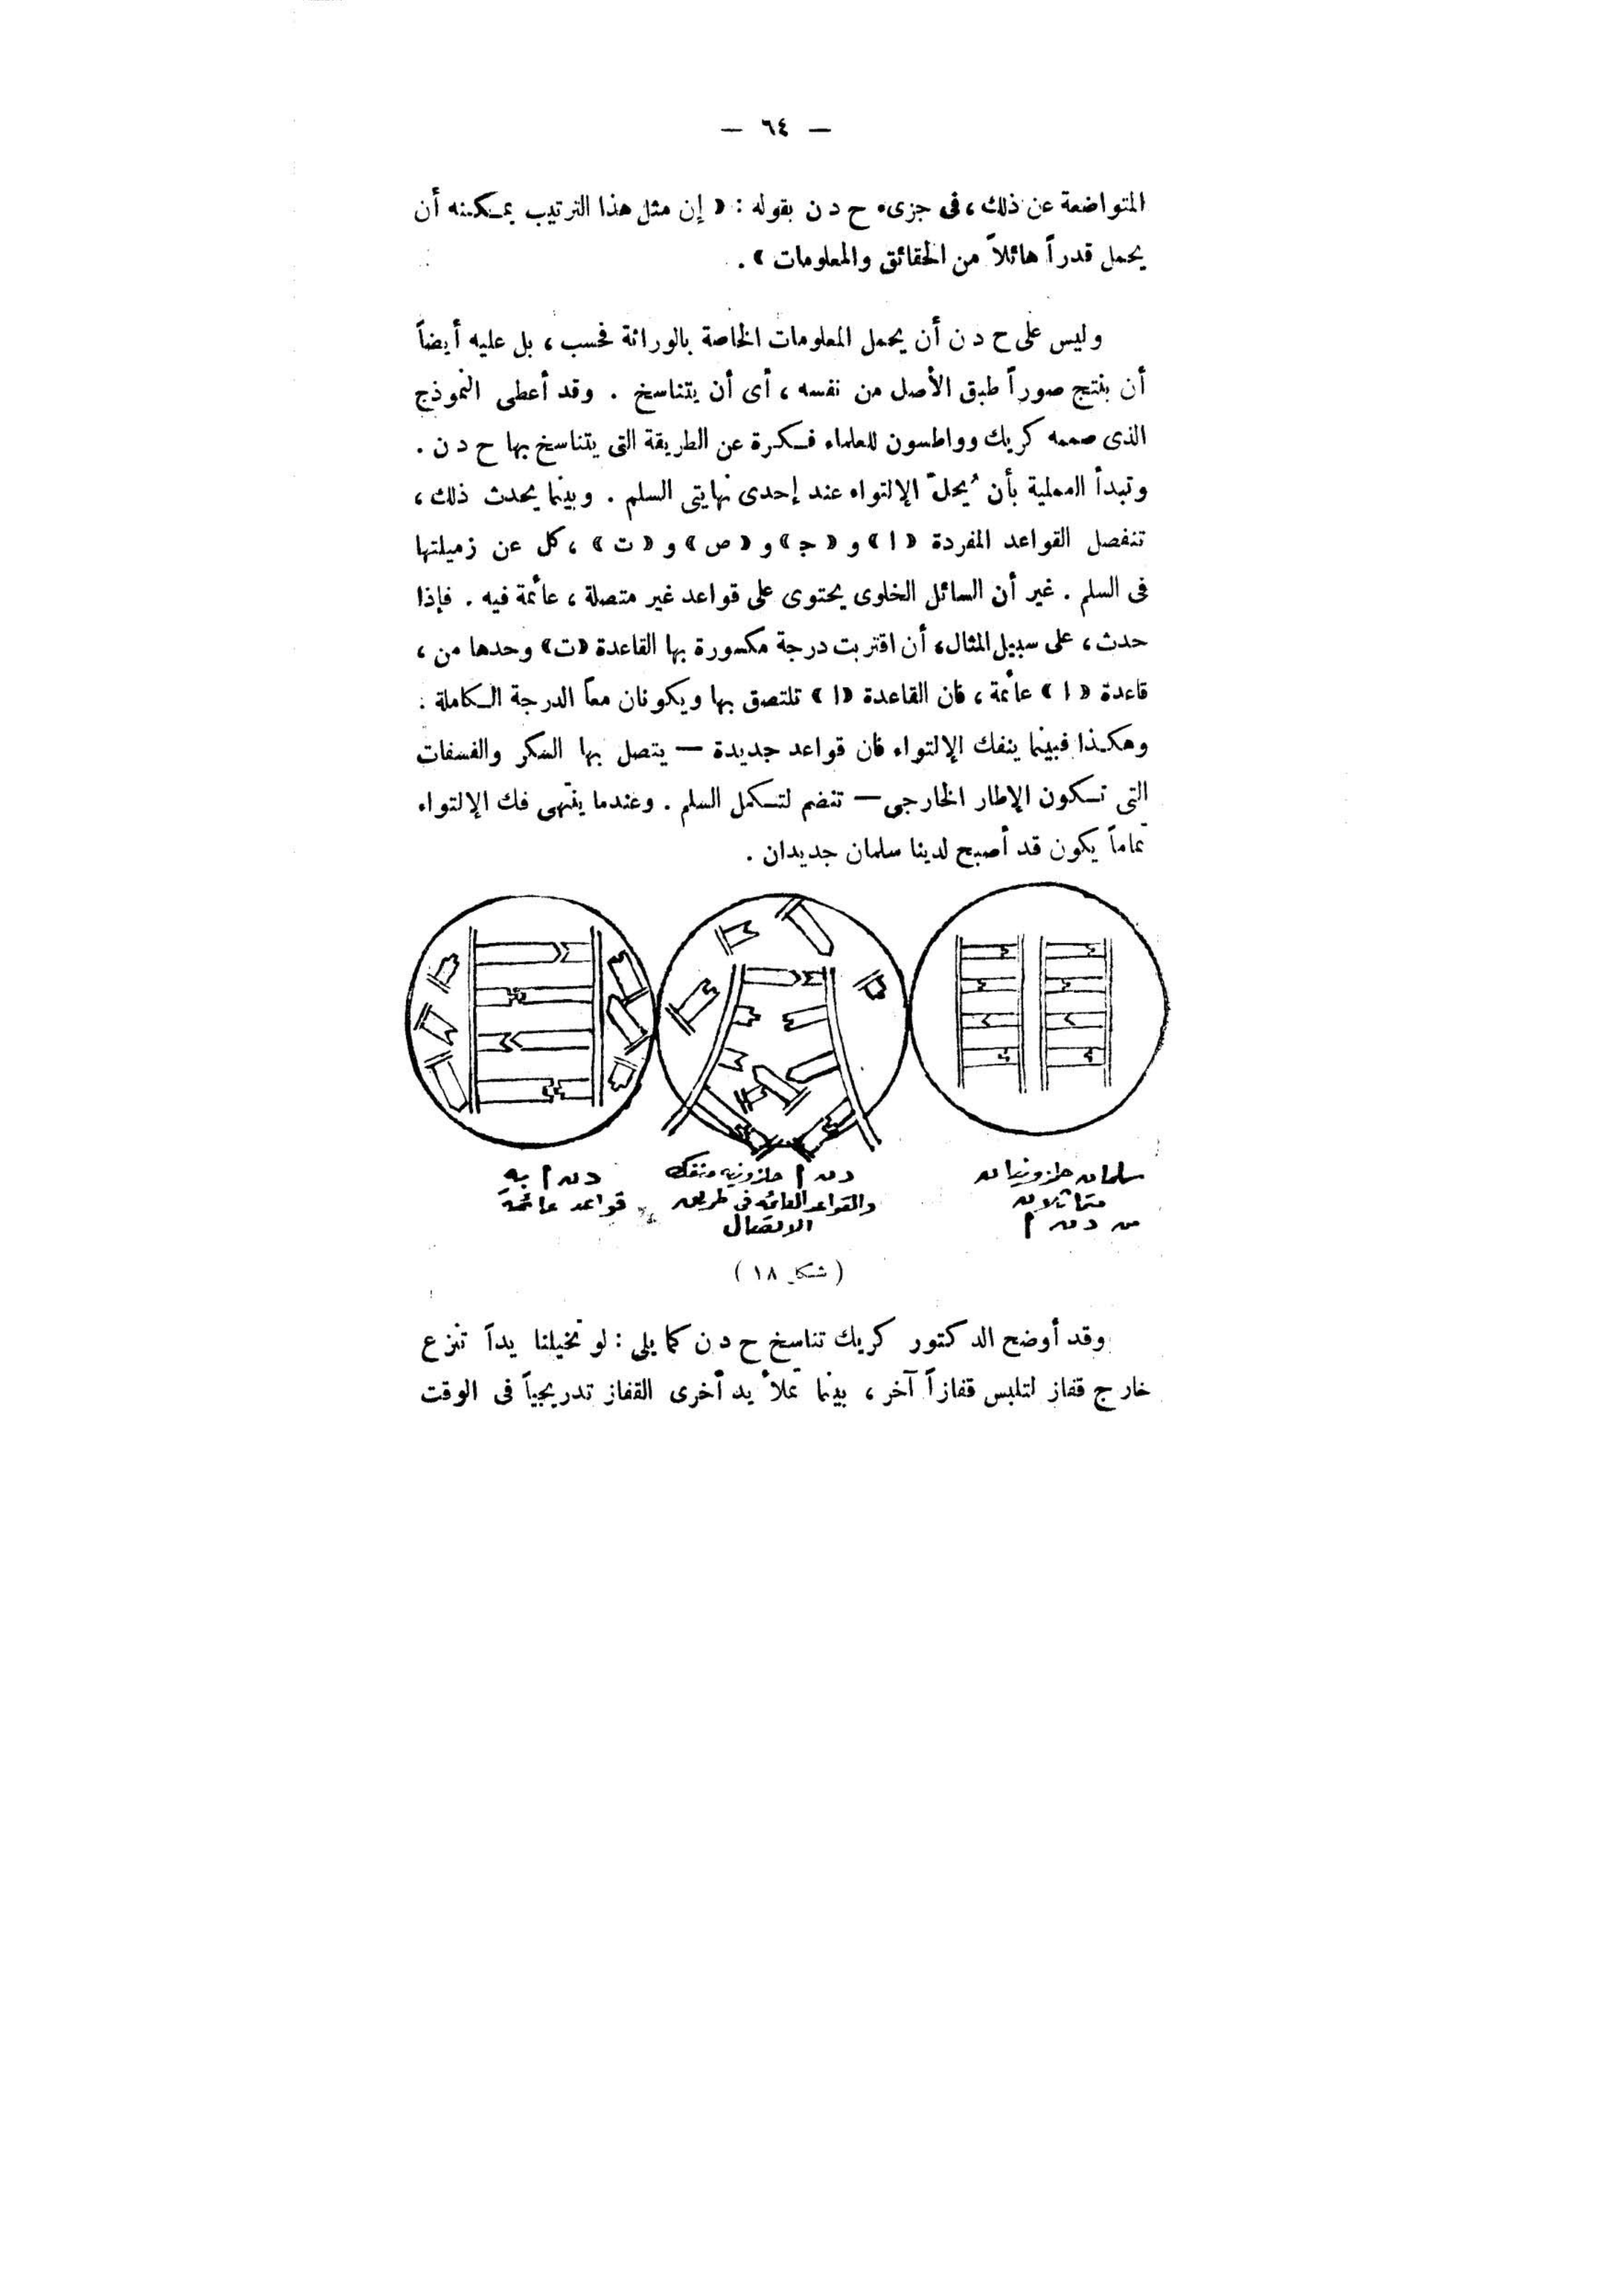 — ٦٤ —
المتواضعة عن ذلك ، فى جزىء ح د ن بقوله : « إن مثل هذا الترتيب يمكنه أن
يحمل قدراً هائلاً من الحقائق والمعلومات » .
وليس على ح د ن أن يحمل المعلومات الخاصة بالوراثة فحسب ، بل عليه أيضاً
أن ينتج صوراً طبق الأصل من نفسه ، أى أن يتناسخ . وقد أعطى النموذج
الذى صممه كريك وواطسون للعلماء فكرة عن الطريقة التى يتناسخ بها ح د ن .
وتبدأ العملية بأن يُحلّ الإلتواء عند إحدى نهايتى السلم . وبينما يحدث ذلك ،
تنفصل القواعد المفردة « ا » و « ج » و « ص » و « ت » ، كل عن زميلتها
فى السلم . غير أن السائل الخلوى يحتوى على قواعد غير متصلة ، عائمة فيه . فإذا
حدث ، على سبيل المثال ، أن اقتربت درجة مكسورة بها القاعدة «ت» وحدها من ،
قاعدة « ا » عائمة ، فان القاعدة «ا » تلتصق بها ويكونان معاً الدرجة الكاملة .
وهكذا فبينما ينفك الإلتواء فان قواعد جديدة — يتصل بها السكر والفسفات
التى تكون الإطار الخارجى — تنضم لتكمل السلم . وعندما ينتهى فك الإلتواء
تماماً يكون قد أصبح لدينا سلمان جديدان .
سلمان حلزونيان
متماثلان
من د ن أ
د ن أ حلزونيه منفك
والقواعد العائمه فى طريق
الاتصال
د ن أ به
قواعد عائمة
( شكل ١٨ )
وقد أوضح الدكتور كريك تناسخ ح د ن كما يلى : لو تخيلنا يداً تنزع
خارج قفاز لتلبس قفازاً آخر ، بينما تملأ يد أخرى القفاز تدريجياً فى الوقت